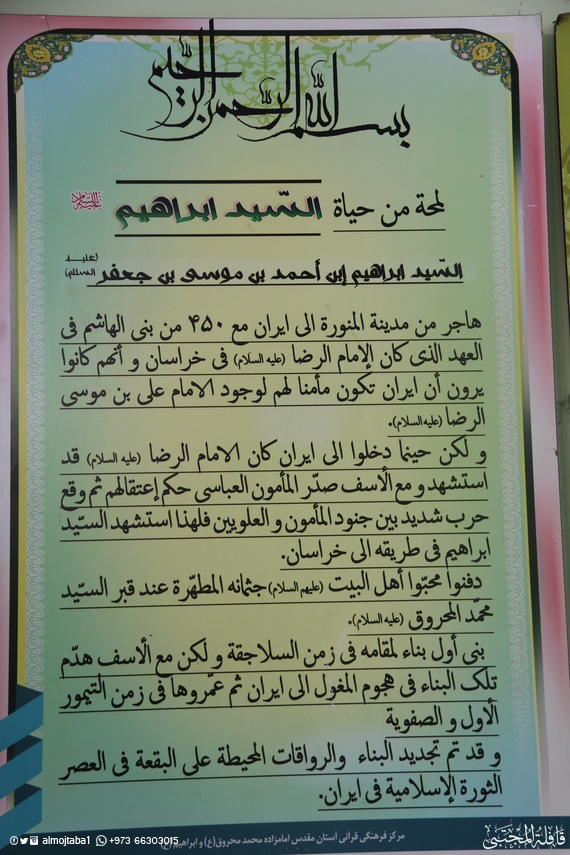 بسم الله الرحمن الرحيم
لمحة من حياة السّيد ابراهيم عليه السلام
السّيد ابراهيم إبن أحمد بن موسى بن جعفر (عليه السلام)
هاجر من مدينة المنورة الى ايران مع ۴۵۰ من بنى الهاشم فى
العهد الذى كان الإمام الرضا (عليه السلام) فى خراسان و أنهم كانوا
يرون أن ايران تكون مأمنا لهم لوجود الامام على بن موسى
الرضا (عليه السلام).
و لكن حينما دخلوا الى ايران كان الامام الرضا (عليه السلام) قد
استشهد و مع الأسف صدّر المأمون العباسى حكم إعتقالهم ثم وقع
حرب شديد بين جنود المأمون و العلويين فلهذا استشهد السّيد
ابراهيم فى طريقه الى خراسان.
دفنوا محبّوا أهل البيت (عليهم السلام) جثمانه المطهّرة عند قبر السّيد
محمّد المحروق (عليه السلام).
بنى أول بناء لمقامه فى زمن السلاجقة و لكن مع الأسف هدّم
تلک البناء فى هجوم المغول الى ايران ثم عمّروها فى زمن التيمور
الأول و الصفوية
و قد تم تجديد البناء والرواقات المحيطة على البقعة فى العصر
الثورة الإسلامية فى ايران.
مرکز فرهنگی قرآنی آستان مقدس امامزاده محمد محروق(ع) و ابراهیم(ع)
almojtaba1 +973 66303015
قافلة المجتبى